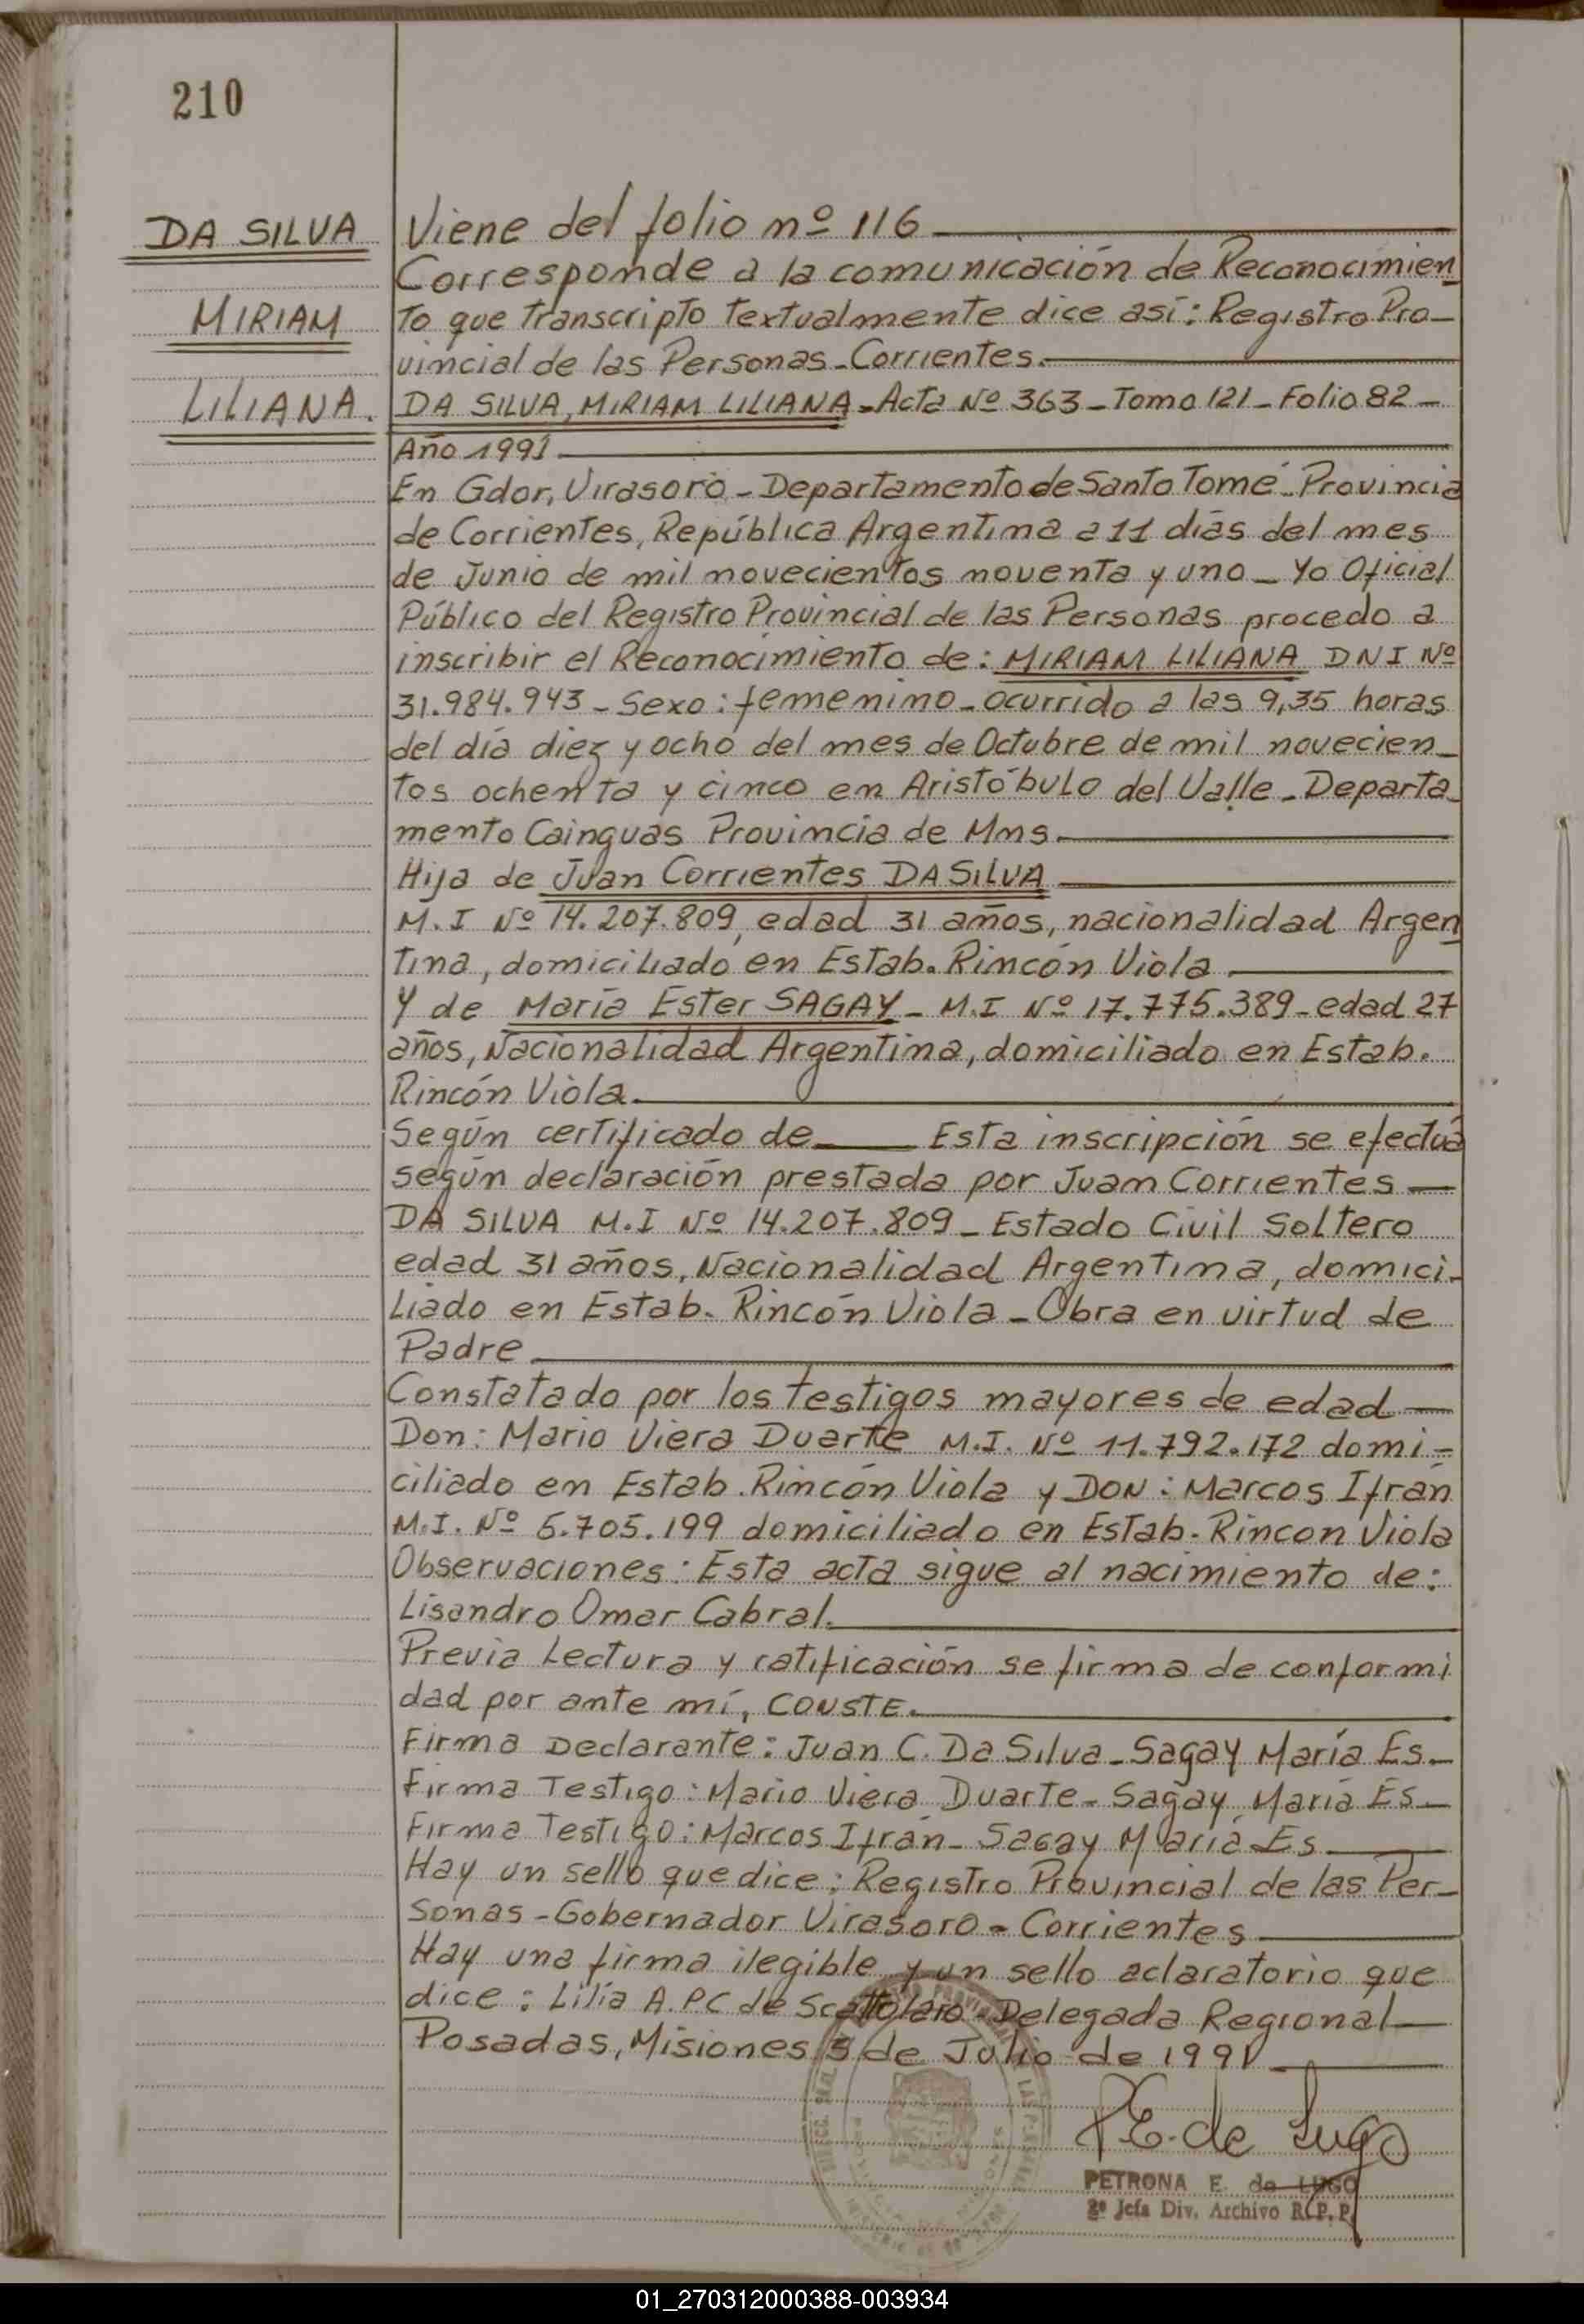 210
DA SILVA
MIRIAM
LILIANA.
Viene del folio nº 116
Corresponde a la comunicación de Reconocimien
to que transcripto textualmente dice así: Registro Pro-
vincial de las Personas-Corrientes.
DA SILVA, MIRIAM LILIANA-Acta Nº 363-Tomo 121-Folio 82-
Año 1991
En Gdor, Virasoro-Departamento de Santo Tomé-Provincia
de Corrientes, República Argentina a 11 días del mes
de Junio de mil novecientos noventa y uno-Yo Oficial
Público del Registro Provincial de las Personas procedo a
inscribir el Reconocimiento de: MIRIAM LILIANA DNI Nº
31.984.943-Sexo: femenino-ocurrido a las 9,35 horas
del día diez y ocho del mes de Octubre de mil novecien-
tos ochenta y cinco en Aristóbulo del Valle-Departa-
mento Cainguas Provincia de Mns.
Hija de Juan Corrientes DA SILVA
M.I Nº 14.207.809, edad 31 años, nacionalidad Argen
tina, domiciliado en Estab. Rincón Viola
Y de María Ester SAGAY-M.I Nº 17.775.389-edad 27
años, Nacionalidad Argentina, domiciliado en Estab.
Rincón Viola.
Según certificado de Esta inscripción se efectuá
según declaración prestada por Juan Corrientes-
DA SILVA M.I Nº 14.207.809-Estado Civil Soltero
edad 31 años, Nacionalidad Argentina, domici-
liado en Estab. Rincón Viola-Obra en virtud de
Padre
Constatado por los testigos mayores de edad-
Don: Mario Viera Duarte M.I. Nº 11.792.172 domi-
ciliado en Estab. Rincón Viola y DON: Marcos Ifrán
M.I. Nº 5.705.199 domiciliado en Estab. Rincon Viola
Observaciones: Esta acta sigue al nacimiento de:
Lisandro Omar Cabral.
Previa Lectura y ratificación se firma de conformi
dad por ante mí, CONSTE.
Firma Declarante: Juan C. Da Silva-Sagay María Es-
Firma Testigo: Mario Viera Duarte-Sagay María Es-
Firma Testigo: Marcos Ifrán-Sagay María Es
Hay un sello que dice: Registro Provincial de las Per-
sonas-Gobernador Virasoro-Corrientes
Hay una firma ilegible y un sello aclaratorio que
dice: Lilia A.P.C de Scattolaro-Delegada Regional-
Posadas, Misiones 5 de Julio de 1991
P.E. de Lugo
PETRONA E. de LUGO
2º Jefa Div. Archivo R.P.P.
01_270312000388-003934